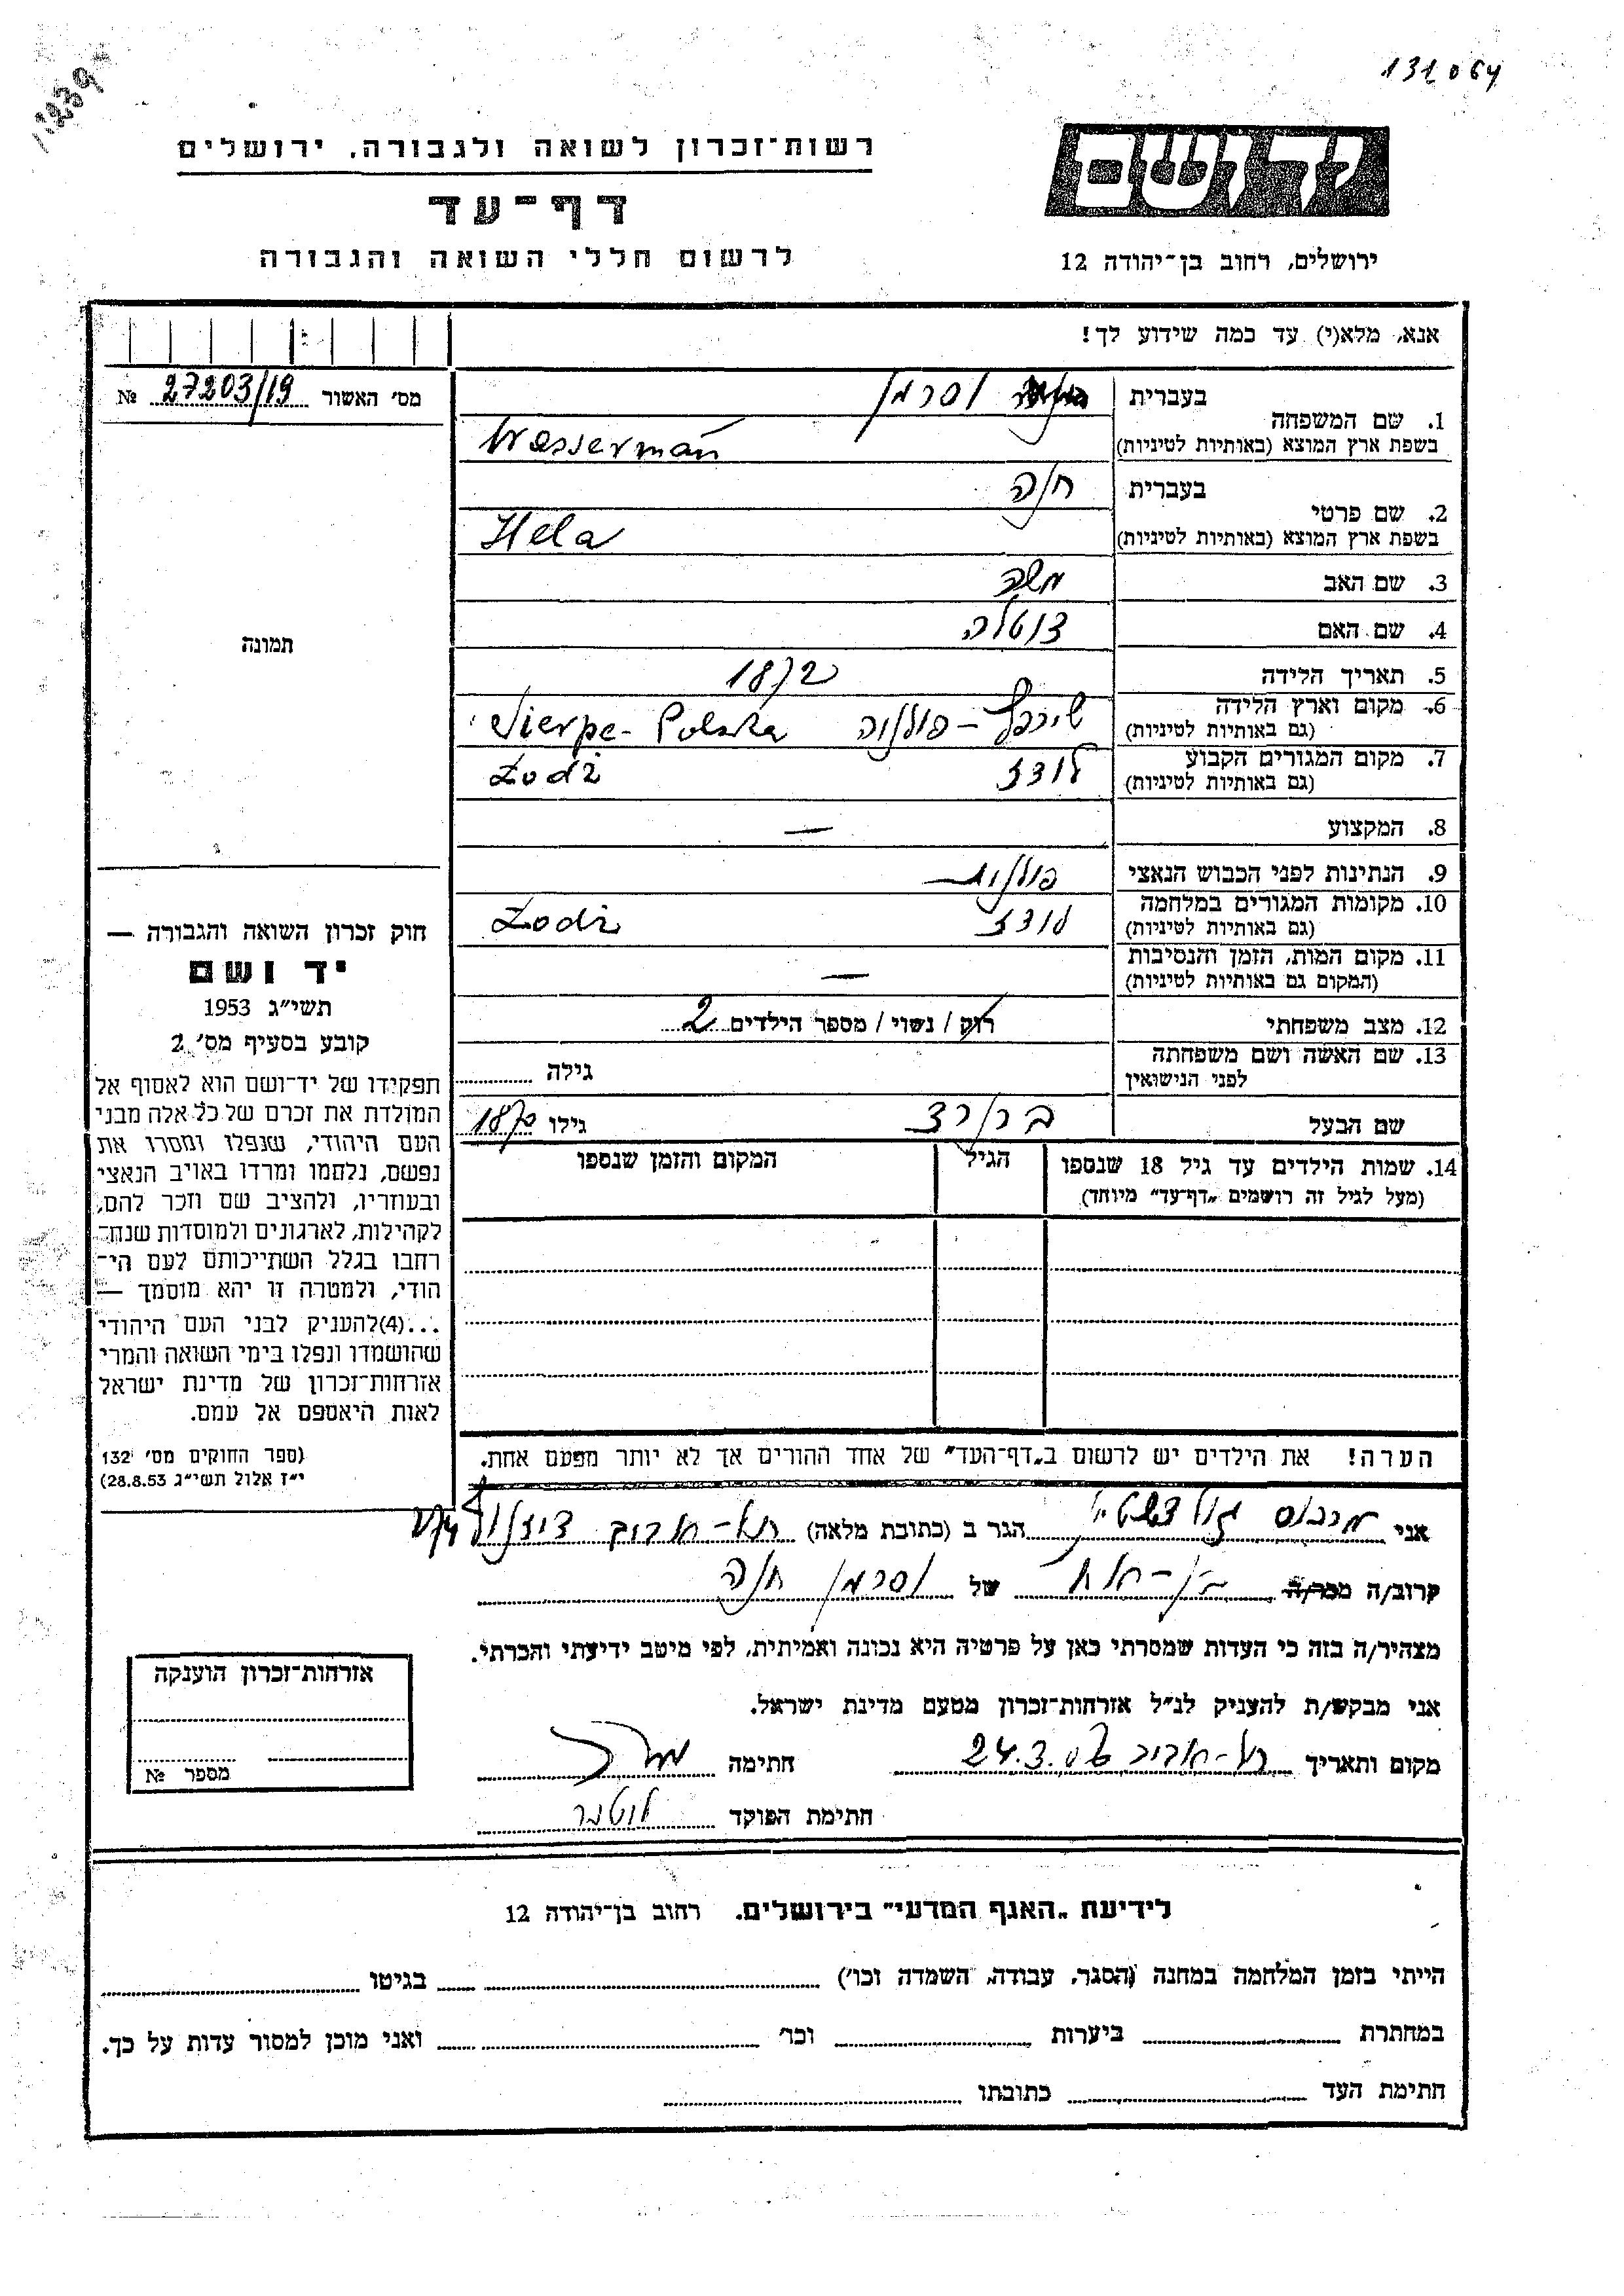 131064
1239
יד ושם
ירושלים, רחוב בן־יהודה 12
רשות־זכרון לשואה ולגבורה, ירושלים
דף־עד
לרשום חללי השואה והגבורה
אנא, מלא(י) עד כמה שידוע לך!
מס׳ האשור 27203/19 №
תמונה
1. שם המשפחה בעברית וסרמן
בשפת ארץ המוצא (באותיות לטיניות) Wasserman
2. שם פרטי בעברית חנה
בשפת ארץ המוצא (באותיות לטיניות) Hela
3. שם האב משה
4. שם האם
5. תאריך הלידה 1872
6. מקום וארץ הלידה שירפץ - פולניה Sierpc - Polska
(גם באותיות לטיניות)
7. מקום המגורים הקבוע לודז Łodż
(גם באותיות לטיניות)
8. המקצוע —
9. הנתינות לפני הכבוש הנאצי פולנית
10. מקומות המגורים במלחמה לודז Łodż
(גם באותיות לטיניות)
11. מקום המות, הזמן והנסיבות —
(המקום גם באותיות לטיניות)
12. מצב משפחתי רוק / נשוי / מספר הילדים 2
13. שם האשה ושם משפחתה גילה
לפני הנישואין
שם הבעל גילו 1870
14. שמות הילדים עד גיל 18 שנספו הגיל המקום והזמן שנספו
(מעל לגיל זה רושמים „דף־עד״ מיוחד)
הערה! את הילדים יש לרשום ב„דף־העד״ של אחד ההורים אך לא יותר מפעם אחת.
חוק זכרון השואה והגבורה —
יד ושם
תשי״ג 1953
קובע בסעיף מס׳ 2
תפקידו של יד־ושם הוא לאסוף אל
המולדת את זכרם של כל אלה מבני
העם היהודי, שנפלו ומסרו את
נפשם, נלחמו ומרדו באויב הנאצי
ובעוזריו, ולהציב שם וזכר להם,
לקהילות, לארגונים ולמוסדות שנח־
רבו בגלל השתייכותם לעם הי־
הודי, ולמטרה זו יהא מוסמך —
...(4)להעניק לבני העם היהודי
שהושמדו ונפלו בימי השואה והמרי
אזרחות־זכרון של מדינת ישראל
לאות היאספם אל עמם.
(ספר החוקים מס׳ 132
י״ז אלול תשי״ג 28.8.53)
אני מרכוס גולדשטיין הגר ב (כתובת מלאה) תל-אביב דיזנגוף
קרוב/ה מכר/ה בן-אח של וסרמן חנה
מצהיר/ה בזה כי העדות שמסרתי כאן על פרטיה היא נכונה ואמיתית, לפי מיטב ידיעתי והכרתי.
אני מבקש/ת להעניק לנ״ל אזרחות־זכרון מטעם מדינת ישראל.
מקום ותאריך תל-אביב 24.3. חתימה
חתימת הפוקד
אזרחות־זכרון הוענקה
מספר №
לידיעת „האגף המדעי״ בירושלים, רחוב בן־יהודה 12
הייתי בזמן המלחמה במחנה (הסגר, עבודה, השמדה וכו׳) בגיטו
במחתרת ביערות וכו׳ ואני מוכן למסור עדות על כך.
חתימת העד כתובתו